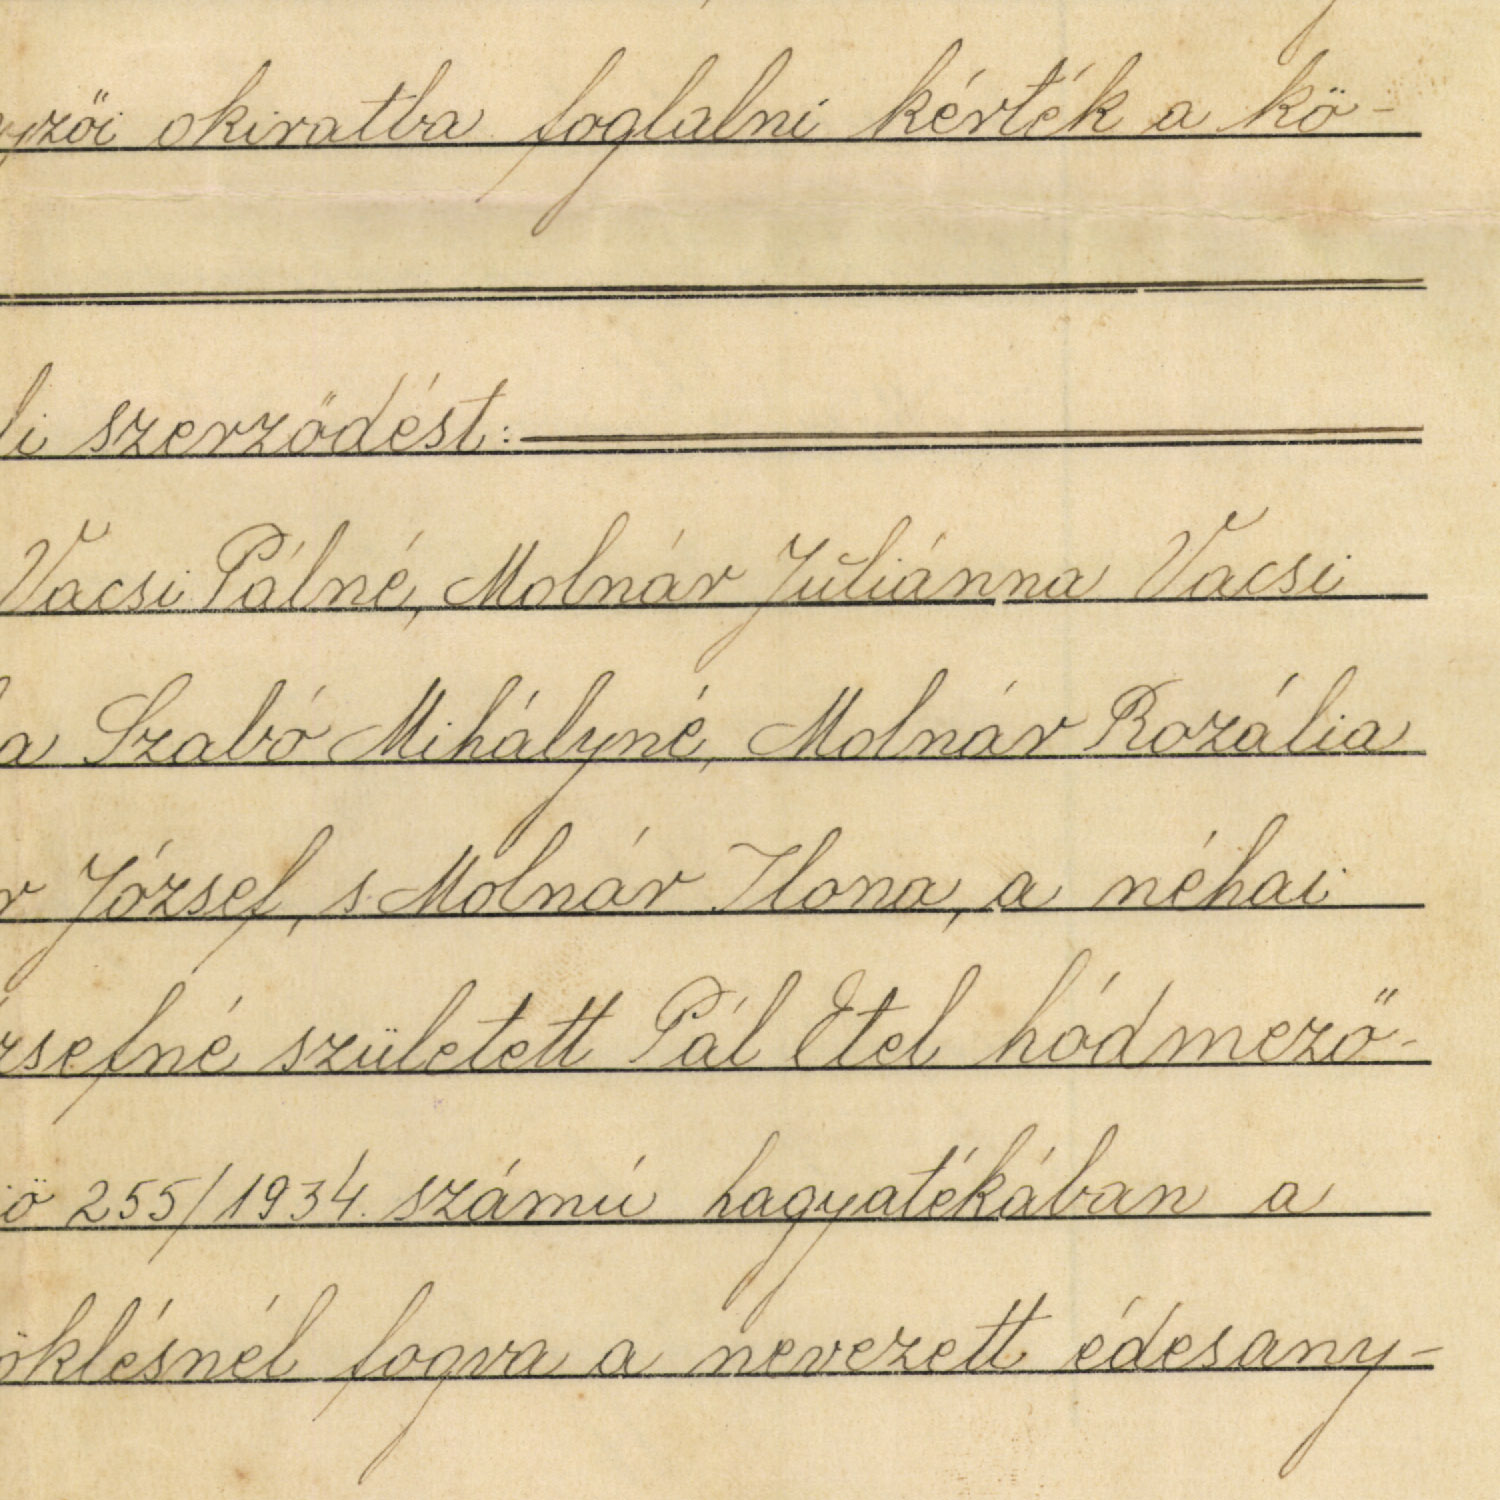 yzői okiratba foglalni kérték a kö-
li szerződést:
Vacsi Pálné, Molnár Juliánna Vacsi
a Szabó Mihályné, Molnár Rozália
r József, s Molnár Ilona, a néhai
zsefné született Pál Etel hódmező-
ző 255/1934. számú hagyatékában a
öklésnél fogva a nevezett édesany-